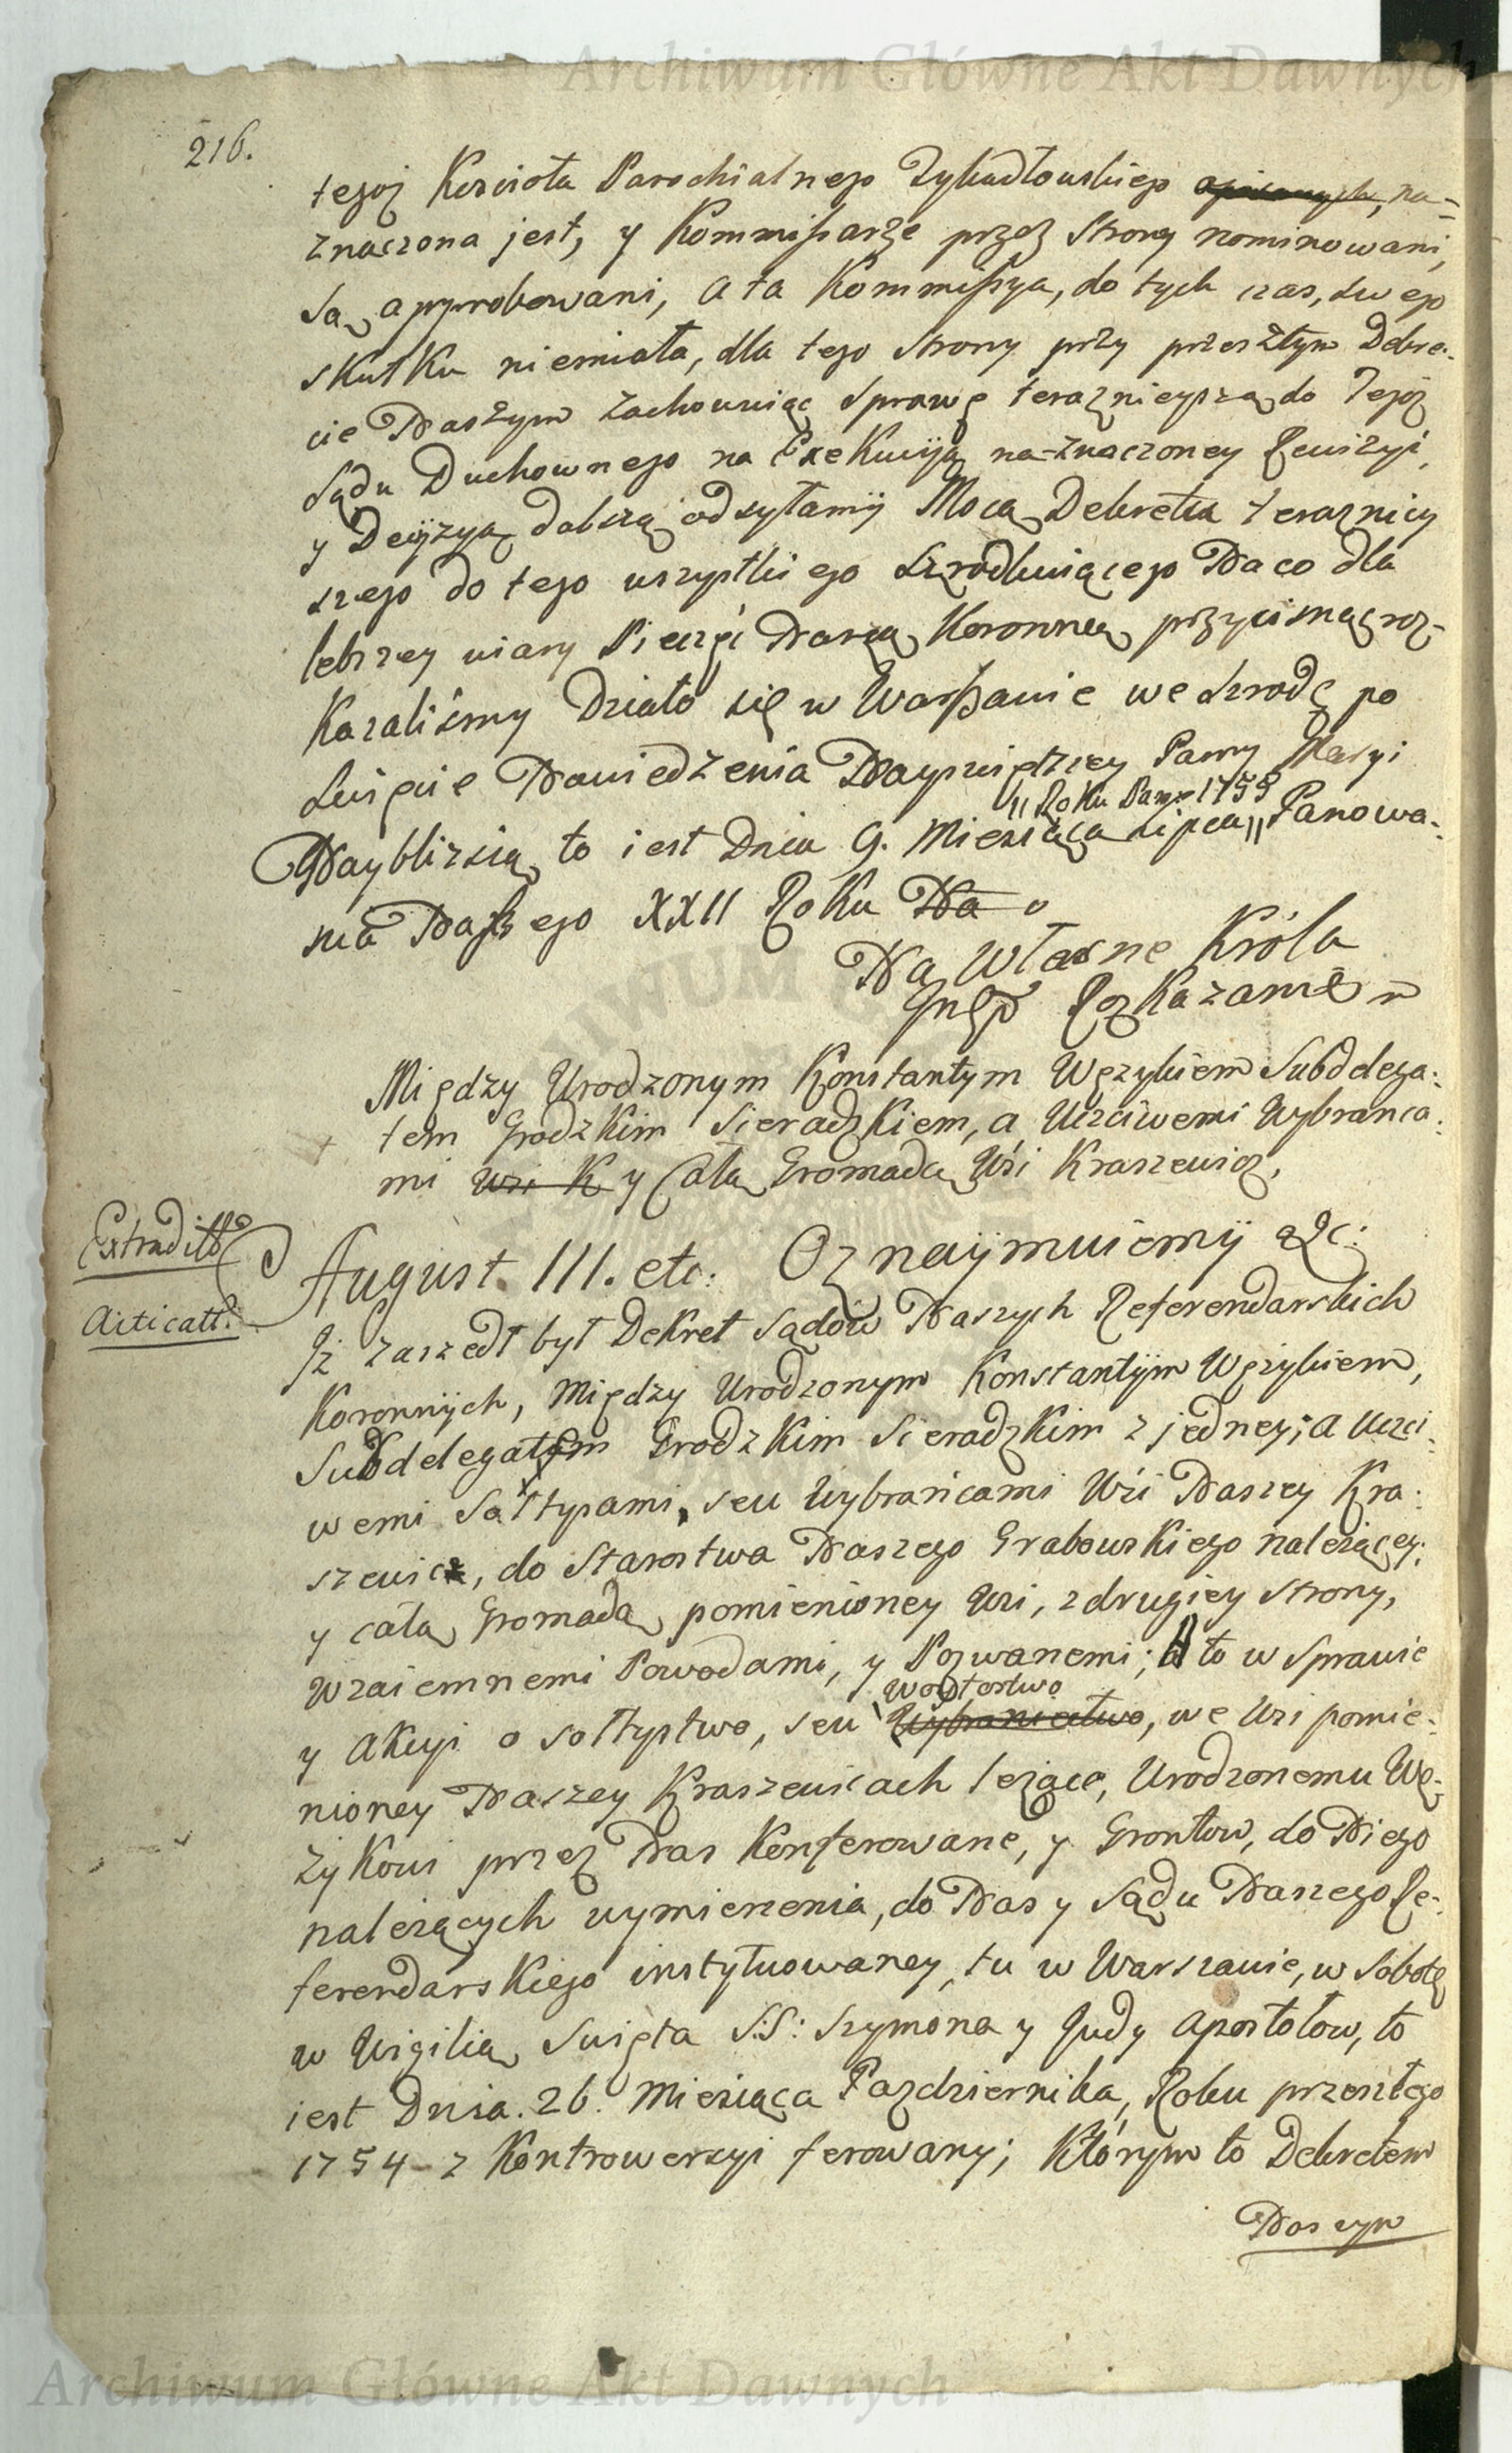 Archiwum Główne Akt Dawnych
216.
tegoż Koscioła Parochialnego Zykadłouskiego opisanych, na=
znaczona jest, y Kommißarze przez Strony nominowani,
są approbowani, a ta Kommißya, do tych czas, swego
skutku niemiała, dla tego Strony przy przeszłym Dekre-
cie Naszym zachowuiąc Sprawę teraznieyszą do Tegoż
Sądu Duchownego na Exekucyą na-znaczoney Rewizyi,
y Decyzyą dalszą odsyłamÿ Mocą Dekretu teraznieÿ
szego do tego wszystkiego Szrodkuiącego Na co dla
lebszey wiary Pieczęć Naszą Koronną przycisnąć roz-
Kazaliśmy Działo się w Warßawie we Szrodę po
Swięcie Nawiedzenia Nayswiętszey Panny Maryi
"Roku Pańgo 1755
Nayblizsią to iest Dnia 9. Miesiąca Lipca" Panowa-
nia Naßego XXII Roku Na
Na Własne Króla
Jmęp Rozkazanie
Między Urodzonym Konstantym Węzykiem Subdelega-
tem Grodzkim Sieradzkiem, a Uczciwemi Wybranca-
mi Wsi K y Całą Gromadą Wsi Kraszewicz,
Extradittō
Acticatt:
August III. etc: Oznaÿmuiemÿ &c:
Jż zaszedł był Dekret Sądów Naszych Referendarskich
Koronnÿch, między Urodzonym Konstantÿm Węzykiem,
Subdelegatem Grodzkim Sieradzkim z jedney; a Uczci-
wemi Sałtysami, seu Wybrańcami Wsi Naszey Kra-
szewicz, do Starostwa Naszego Grabowskiego nalezącey;
y całą Gromadą pomienioney Wsi, z drugiey strony,
Wzaiemnemi Powodami, y Pozwanemi; A to w sprawie
Woytostwo
y Akcyi o sołtystwo, seu Wybraniectwo, we Wsi pomie-
nioney Naszey Kraszewicach lezące, Urodzonemu Wę-
zykowi przez Nas Konferowane, y Grontow, do Niego
nalezących wymierzenia, do Nas y Sądu Naszego Re-
ferendarskiego instytuowaney, tu w Warszawie, w Sobotę
w Wigilią Swięta S:S: Szymona y Judy Apostołow, to
iest Dnia. 26. Miesiąca Pazdziernika, Roku przeszłego
1754 z Kontrowersyi ferowany; Którym to Dekretem
Naszym
Archiwum Główne Akt Dawnych